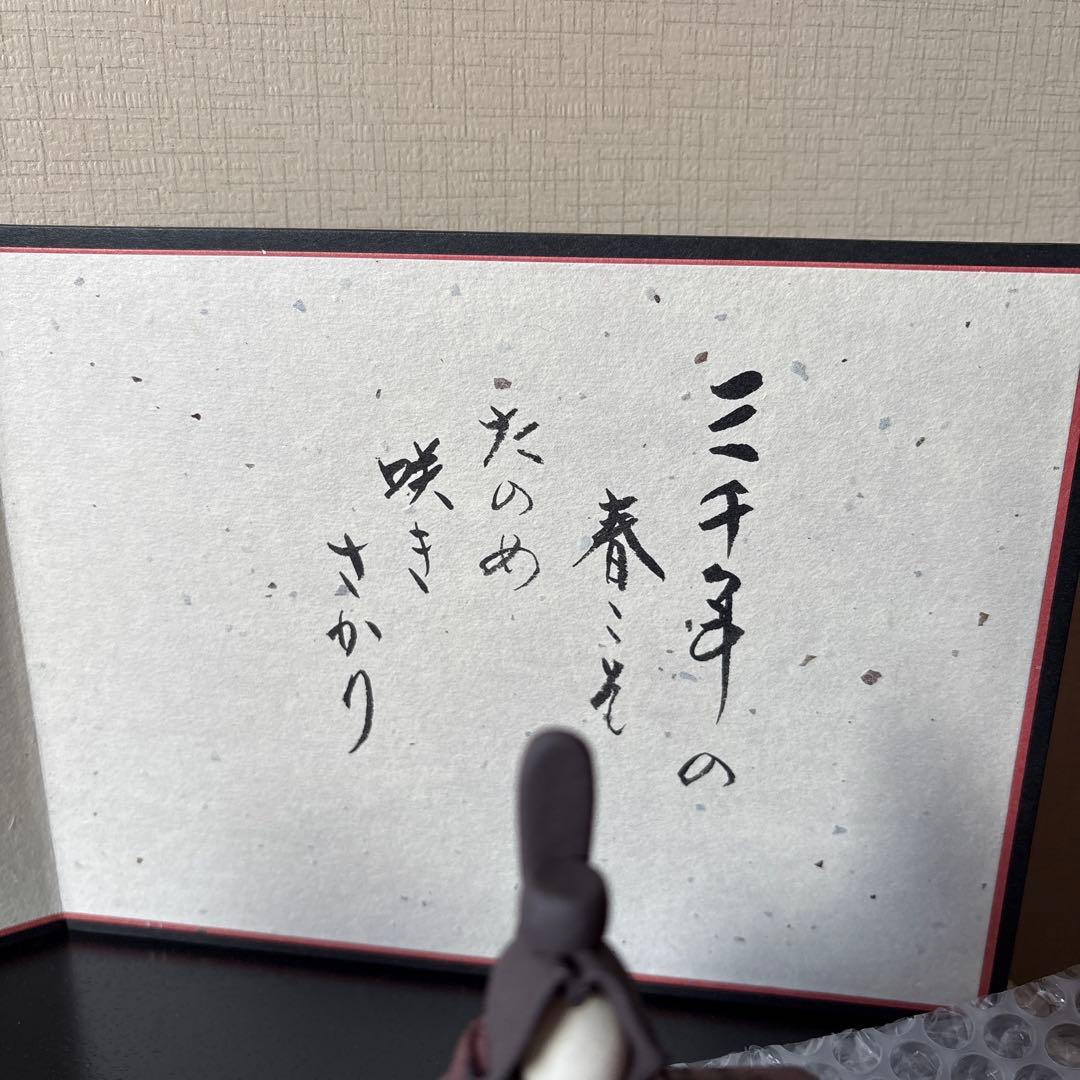 三千年の
春こそ
たのめ
咲き
さかり